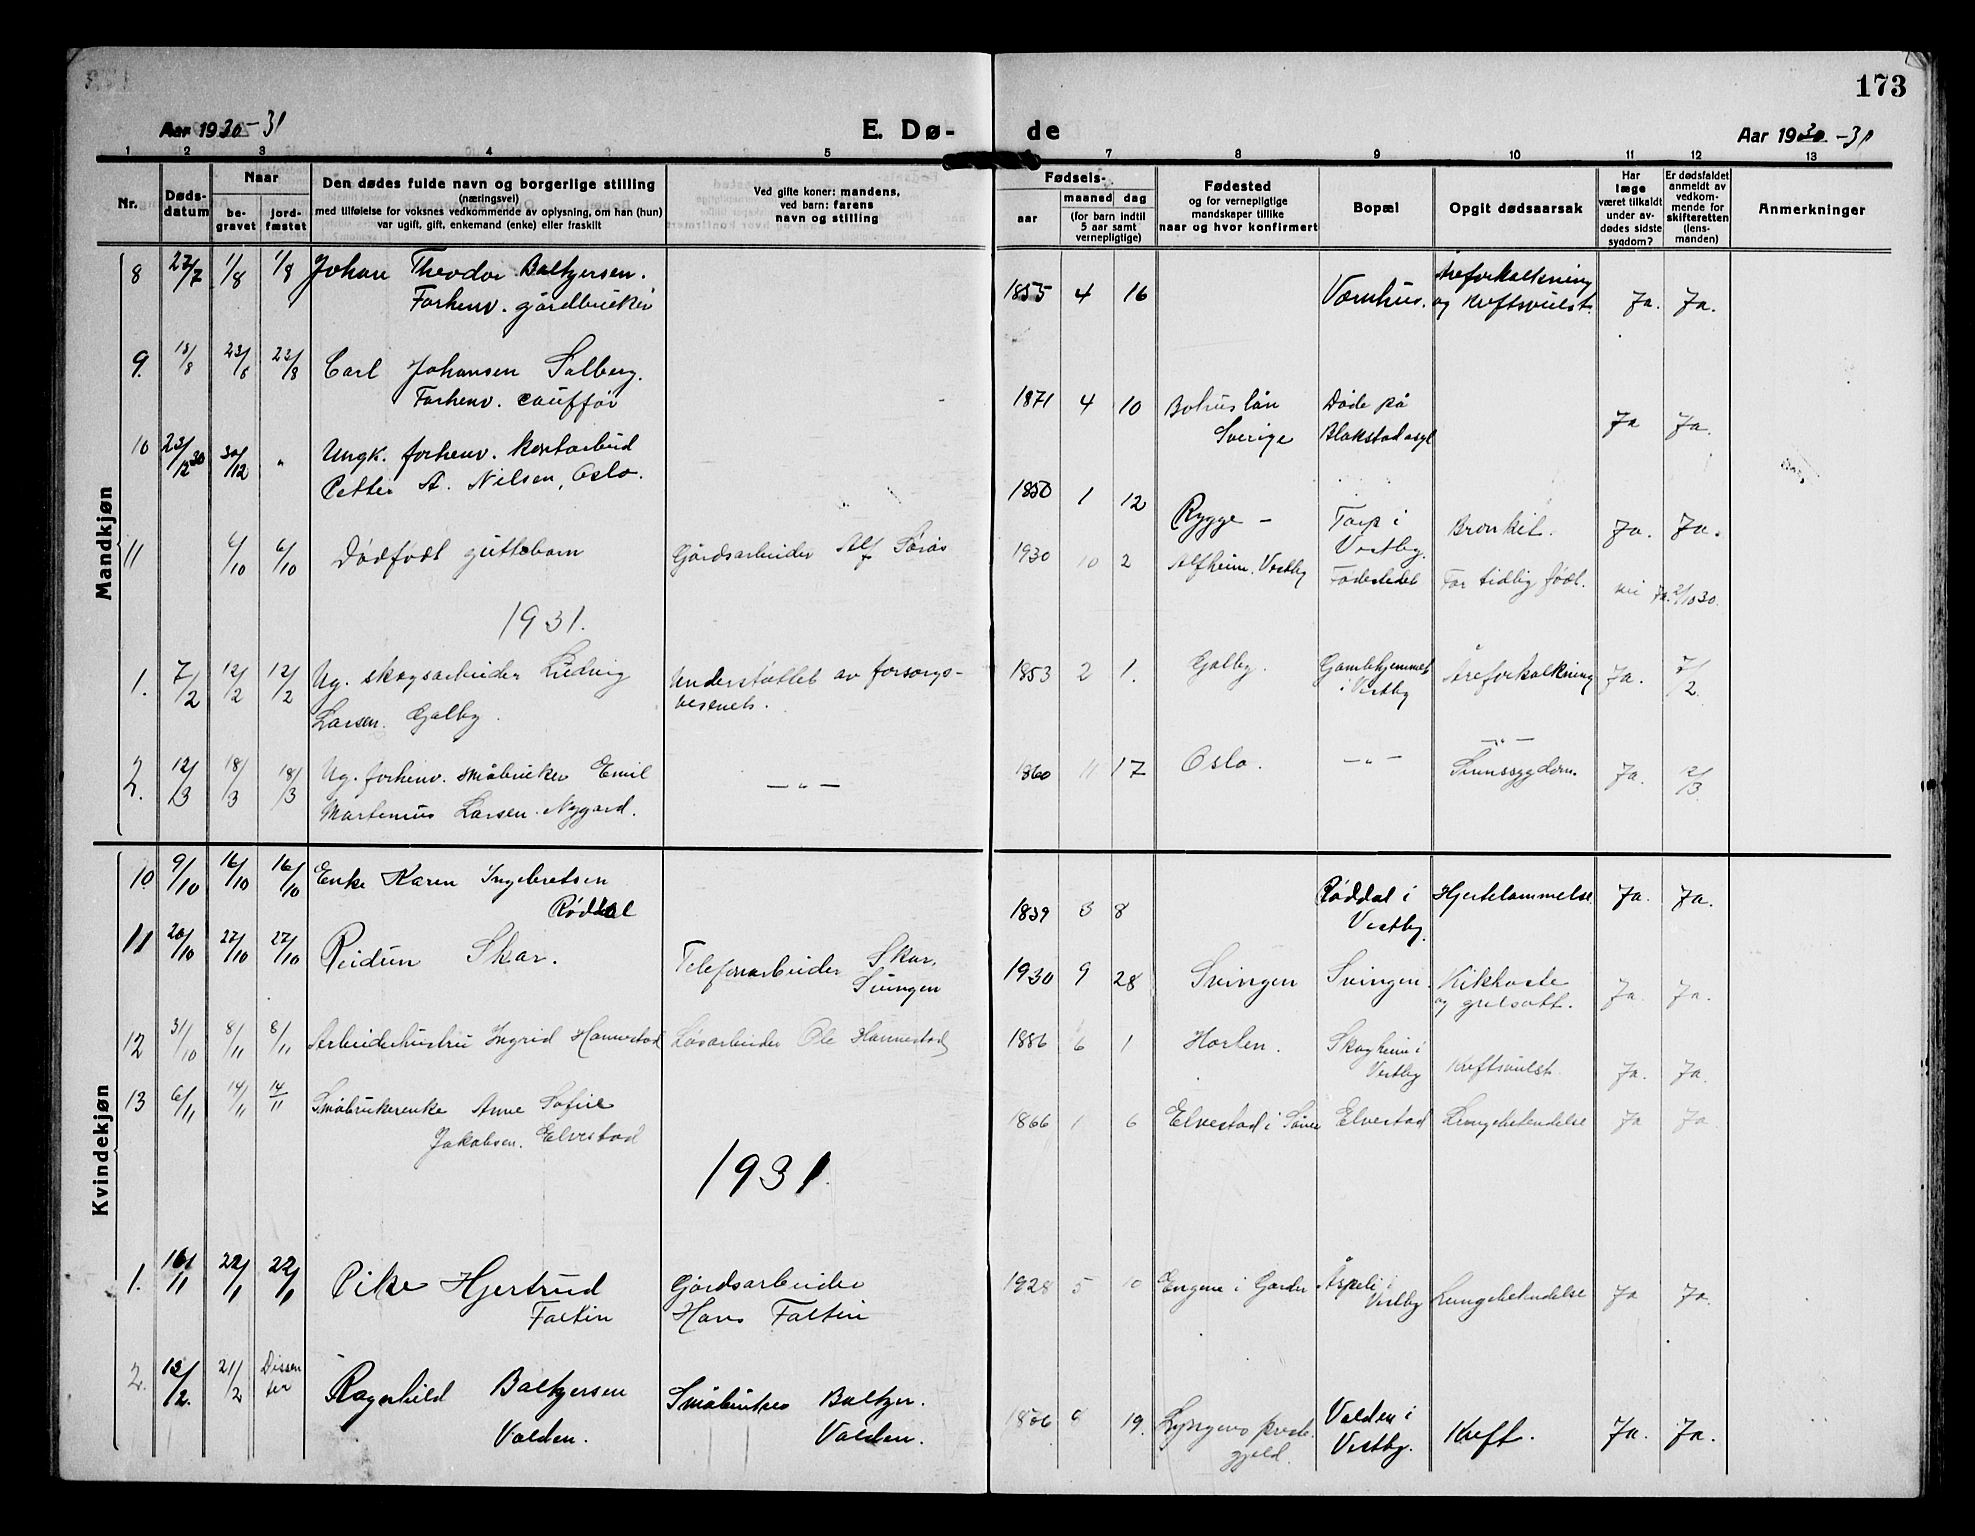 173
Aar 1930-31
E. Dø-
de
Aar 1930-31
1 2 3 4 5 7 8 9 10 11 12 13
Nr.
Døds-
datum
Naar
be-
gravet
jord-
fæstet
Den dødes fulde navn og borgerlige stilling
(næringsvei)
med tilføielse for voksnes vedkommende av oplysning, om han (hun)
var ugift, gift, enkemand (enke) eller fraskilt
Ved gifte koner: mandens,
ved barn: farens
navn og stilling
Fødsels-
aar
maaned dag
(for barn indtil
5 aar samt
vernepligtige)
Fødested
og for vernepligtige
mandskaper tillike
naar og hvor konfirmert
Bopæl
Opgit dødsaarsak
Har
læge
været tilkaldt
under av-
dødes sidste
sygdom?
Er dødsfaldet
anmeldt av
vedkom-
mende for
skifteretten
(lens-
manden)
Anmerkninger
Mandkjøn
8 27/7 1/8 1/8 Johan Theodor Baltzersen.
Forhenv. gårdbruker
1855 4 16 Værnhus. Åreforkalkning
og kreftsvulst. Ja. Ja.
9. 18/8 23/8 23/8 Carl Johansen Solberg.
Forhenv. caufför
1871 4 10 Bohuslän
Sverige
Döde på
Blakstad asyl
Ja Ja.
10 23/12 30 30/12 " Ungk. forhenv. kontorbud
Petter A. Nilsen, Oslo.
1850 1 12 Rygge - Torp i
Vestby. Bronkit. Ja. Ja.
11 6/10 6/10 Dödfödt guttebarn Gårdsarbeider Alf Sørås
1930 10 2 Alfheim. Vestby Födestedet For tidlig födt. nei Ja. 2/10 30.
1931.
1. 7/2 12/2 12/2 Ug. skogsarbeider Ludvig
Larsen. Galby.
Understöttet av forsorgs-
vesenet.
1853 2 1. Galby. Gamlehjemmet
i Vestby Åreforkalkning Ja. 7/2.
2. 12/3 18/3 18/3 Ug. forhenv. småbruker Emil
Martinius Larsen. Nygård.
— " —
1860 11 17 Oslo. — " — — " —
Sinnssygdom. Ja. 12/3.
Kvindekjøn
10. 9/10 16/10 16/10 Enke Karen Ingebretsen
Røddal
1839 3 8 Røddal i
Vestby. Hjertelammelse Ja. Ja.
11 20/10 27/10 27/10 Reidun Skar. Telefonarbeider Skar,
Svingen
1930 9 28 Svingen Svingen. Kikhoste
og gulsott. Ja. Ja.
12 31/10 8/11 8/11 Arbeiderhustru Ingrid Hannestad Løsarbeider Ole Hannestad
1886 6 1 Horten. Skogheim i
Vestby Kreftsvulst. Ja. Ja.
13 6/11 14/11 14/11 Småbrukerenke Anne Sofie
Jakobsen. Elvestad
1866 1 6 Elvestad i Såner Elvestad Lungebetendelse Ja Ja.
1931.
1. 16/1 22/1 22/1 Pike Hjertrud
Faltin
Gårdsarbeider
Hans Faltin
1928 5 10 Engene i Garder. Åspeli i
Vestby Lungebetendelse Ja Ja.
2. 13/2. 21/2 Dissen
ter Ragnhild Baltzersen
Valden.
Småbruker Baltzer.
Valden.
19. Lyngens preste
gjeld. Valden i
Vestby. Kreft. Ja. Ja.